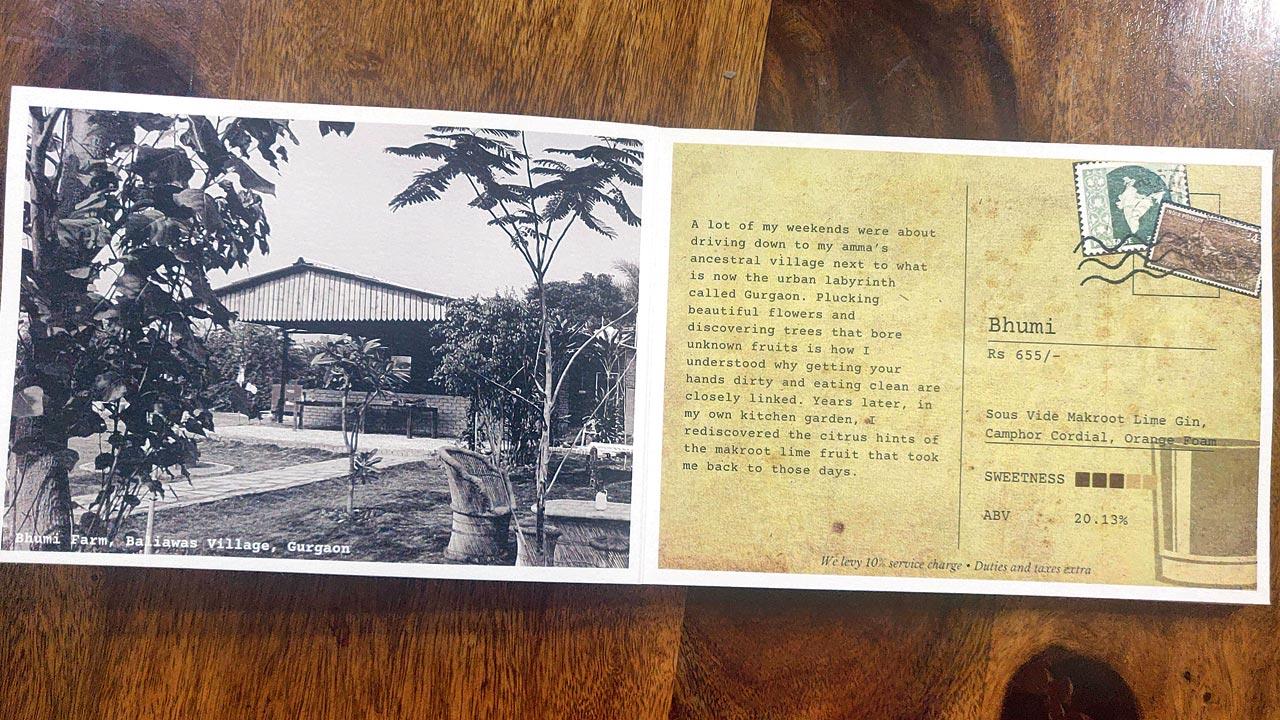 Bhumi Farm, Baliawas Village, Gurgaon
A lot of my weekends were about
driving down to my amma's
ancestral village next to what
is now the urban labyrinth
called Gurgaon. Plucking
beautiful flowers and
discovering trees that bore
unknown fruits is how I
understood why getting your
hands dirty and eating clean are
closely linked. Years later, in
my own kitchen garden, I
rediscovered the citrus hints of
the makroot lime fruit that took
me back to those days.
INDIA POSTAGE
Bhumi
Rs 655/-
Sous Vide Makroot Lime Gin,
Camphor Cordial, Orange Foam
SWEETNESS
ABV 20.13%
We levy 10% service charge • Duties and taxes extra